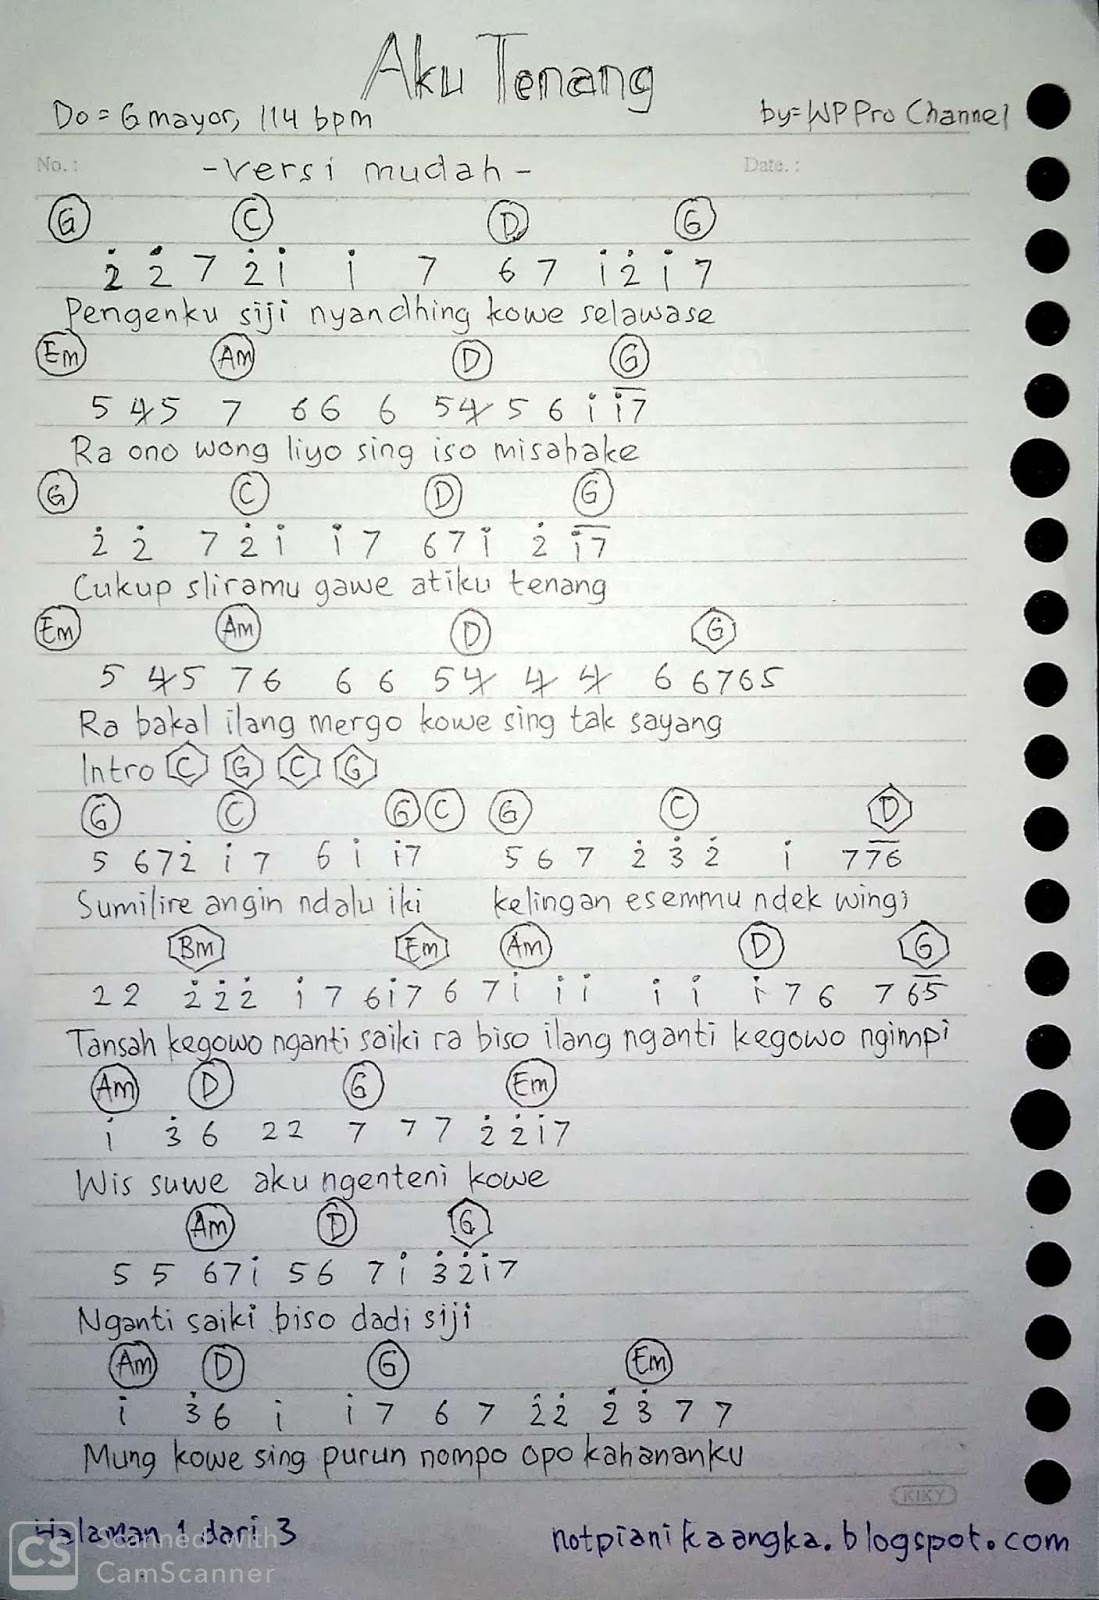 Aku Tenang
Do = G mayor, 114 bpm by= WP Pro Channel
No. : - versi mudah - Date. :
G C D G
2̇ 2̇ 7 2̇ 1̇ 1̇ 7 6 7 1̇ 2̇ 1̇ 7
Pengenku siji nyandhing kowe selawase
Em Am D G
5 4̸ 5 7 6 6 6 5 4̸ 5 6 1̇ 1̇7
Ra ono wong liyo sing iso misahake
G C D G
2̇ 2̇ 7 2̇ 1̇ 1̇ 7 6 7 1̇ 2̇ 1̇7
Cukup sliramu gawe atiku tenang
Em Am D G
5 4̸ 5 7 6 6 6 5 4̸ 4̸ 4̸ 6 6 7 6 5
Ra bakal ilang mergo kowe sing tak sayang
Intro C G C G
G C G C G C D
5 6 7 2̇ 1̇ 7 6 1̇ 1̇7 5 6 7 2̇ 3̇ 2̇ 1̇ 7 7 6
Sumilire angin ndalu iki kelingan esemmu ndek wingi
Bm Em Am D G
2 2 2̇ 2̇ 2̇ 1̇ 7 6 1̇ 7 6 7 1̇ 1̇ 1̇ 1̇ 1̇ 1̇ 7 6 7 6 5
Tansah kegowo nganti saiki ra biso ilang nganti kegowo ngimpi
Am D G Em
1̇ 3̇ 6 2 2 7 7 7 2̇ 2̇ 1̇ 7
Wis suwe aku ngenteni kowe
Am D G
5 5 6 7 1̇ 5 6 7 1̇ 3̇ 2̇ 1̇ 7
Nganti saiki biso dadi siji
Am D G Em
1̇ 3̇ 6 1̇ 1̇ 7 6 7 2̇ 2̇ 2̇ 3̇ 7 7
Mung kowe sing purun nompo opo kahananku
KIKY
Halaman 1 dari 3 notpianikaangka.blogspot.com
CS Scanned with
CamScanner